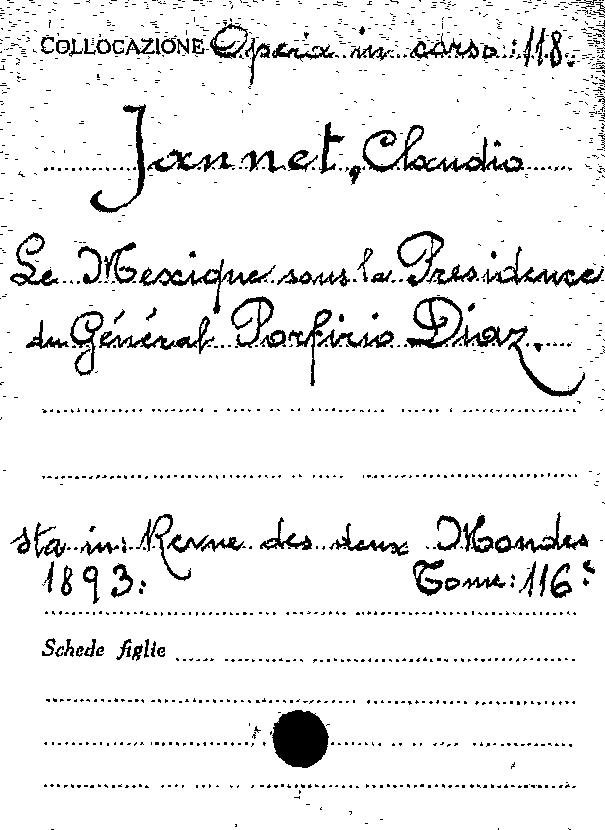 COLLOCAZIONE Opera in corso: 118.
Jannet, Claudio
Le Mexique sous la Presidence
du Général Porfirio Diaz.
sta in: Revue des deux Mondes
1893. Tome: 116º
Schede figlie